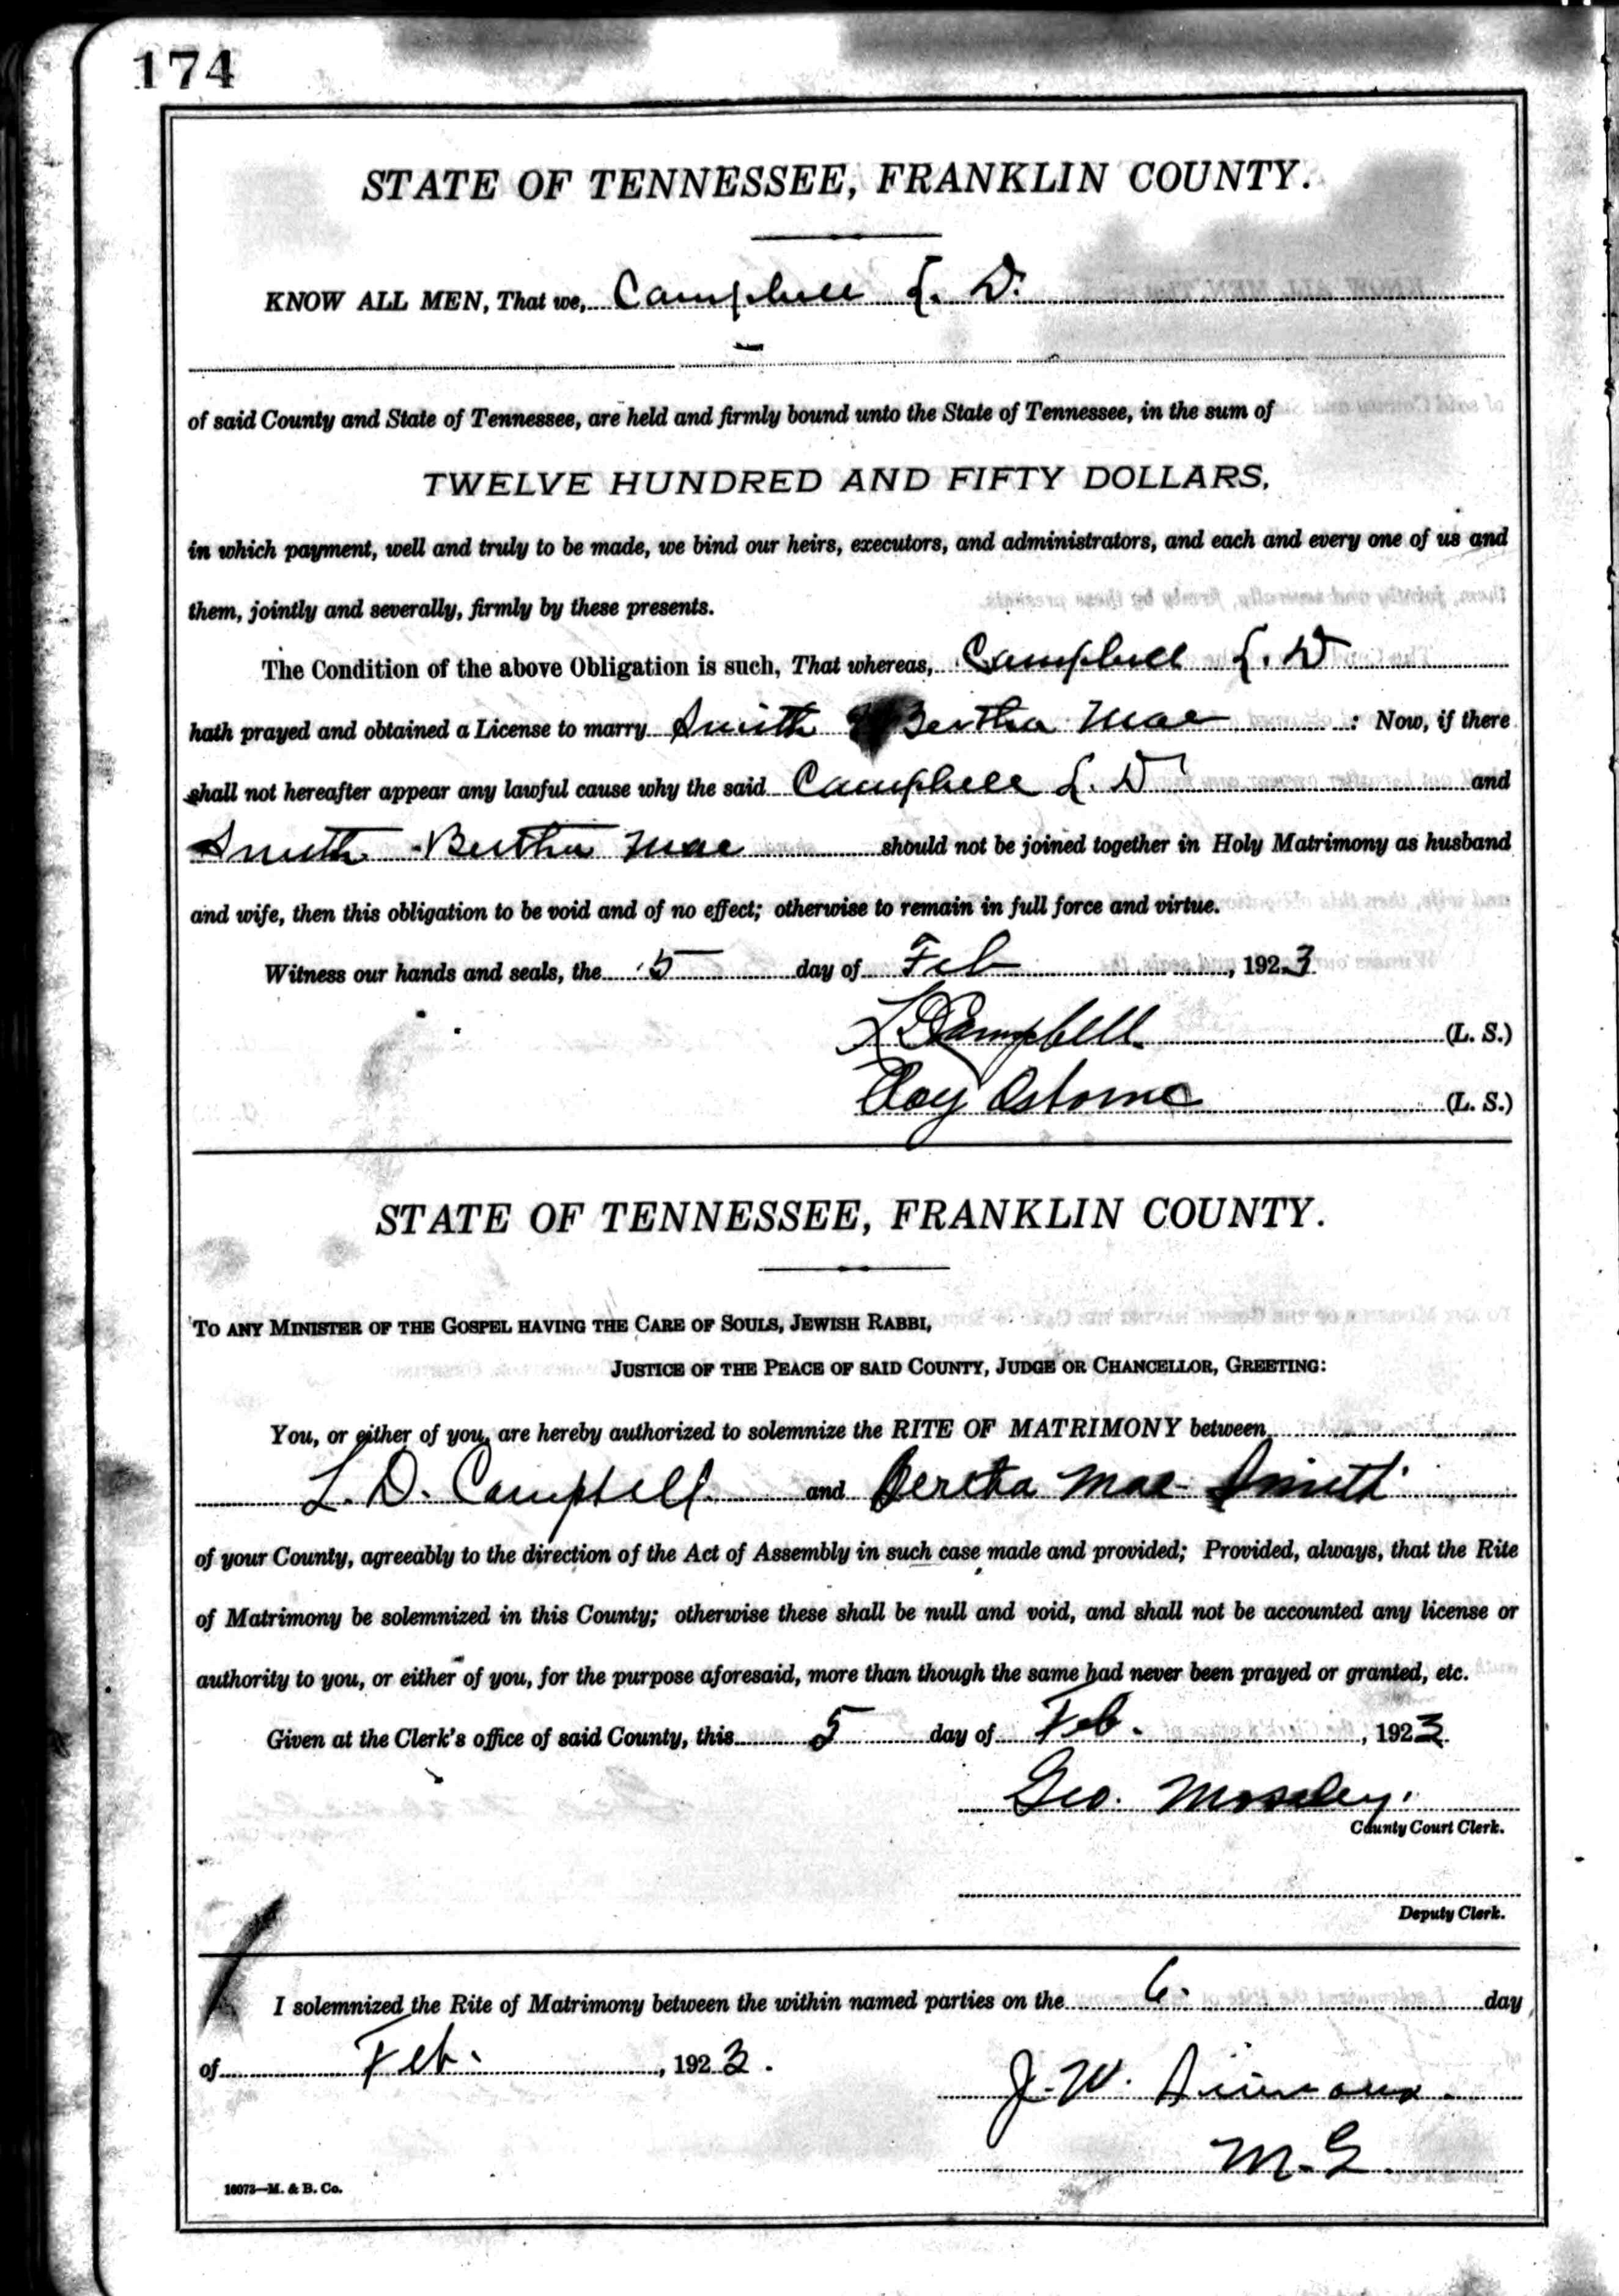 174
STATE OF TENNESSEE, FRANKLIN COUNTY.
KNOW ALL MEN, That we, Campbell L. D.
of said County and State of Tennessee, are held and firmly bound unto the State of Tennessee, in the sum of
TWELVE HUNDRED AND FIFTY DOLLARS,
in which payment, well and truly to be made, we bind our heirs, executors, and administrators, and each and every one of us and
them, jointly and severally, firmly by these presents.
The Condition of the above Obligation is such, That whereas, Campbell L. D
hath prayed and obtained a License to marry Smith Bertha Mae : Now, if there
shall not hereafter appear any lawful cause why the said Campbell L. D and
Smith Bertha Mae should not be joined together in Holy Matrimony as husband
and wife, then this obligation to be void and of no effect; otherwise to remain in full force and virtue.
Witness our hands and seals, the 5 day of Feb , 1923
L D Campbell (L. S.)
Osborne (L. S.)
STATE OF TENNESSEE, FRANKLIN COUNTY.
TO ANY MINISTER OF THE GOSPEL HAVING THE CARE OF SOULS, JEWISH RABBI,
JUSTICE OF THE PEACE OF SAID COUNTY, JUDGE OR CHANCELLOR, GREETING:
You, or either of you, are hereby authorized to solemnize the RITE OF MATRIMONY between
L. D. Campbell and Bertha Mae Smith
of your County, agreeably to the direction of the Act of Assembly in such case made and provided; Provided, always, that the Rite
of Matrimony be solemnized in this County; otherwise these shall be null and void, and shall not be accounted any license or
authority to you, or either of you, for the purpose aforesaid, more than though the same had never been prayed or granted, etc.
Given at the Clerk's office of said County, this 5 day of Feb. , 1923
Geo. Moseley.
County Court Clerk.
Deputy Clerk.
I solemnized the Rite of Matrimony between the within named parties on the 6. day
of Feb. , 1923.
J. W. Simmons
M. G.
16073—M. & B. Co.